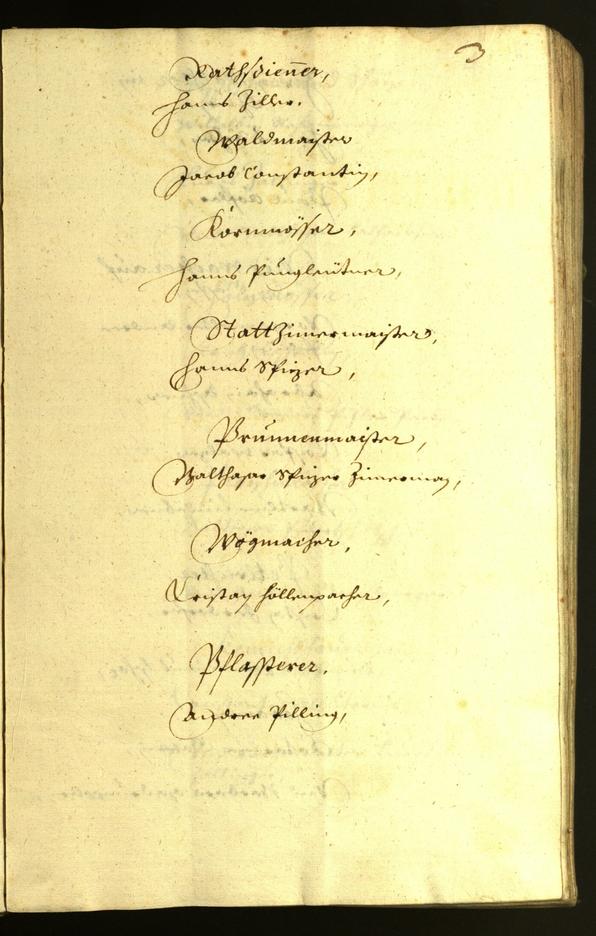 3
Rathsdienner,
Hanns Ziller.
Waldmaister
Jacob Constantin,
Kornmösser,
Hanns Pungleütner,
Stattzimermaister,
Hanns Spizer,
Prunnenmaister,
Walthasar Spizer Zimerman,
Wögmacher,
Cristan Höllenpacher,
Pflasterer.
Andree Pilling,